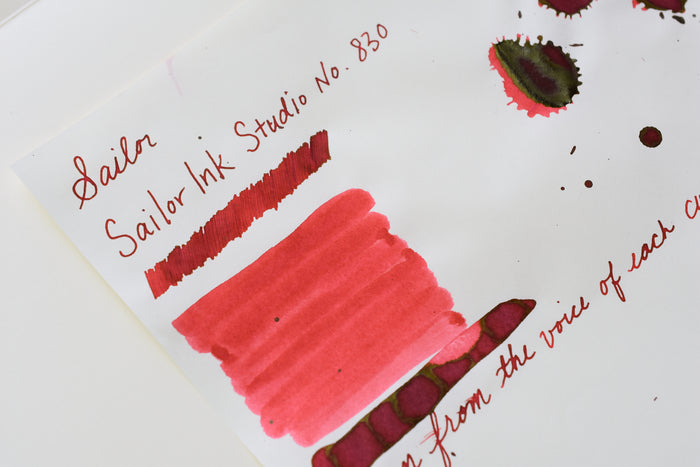 Sailor
Sailor Ink Studio No. 830
from the voice of each